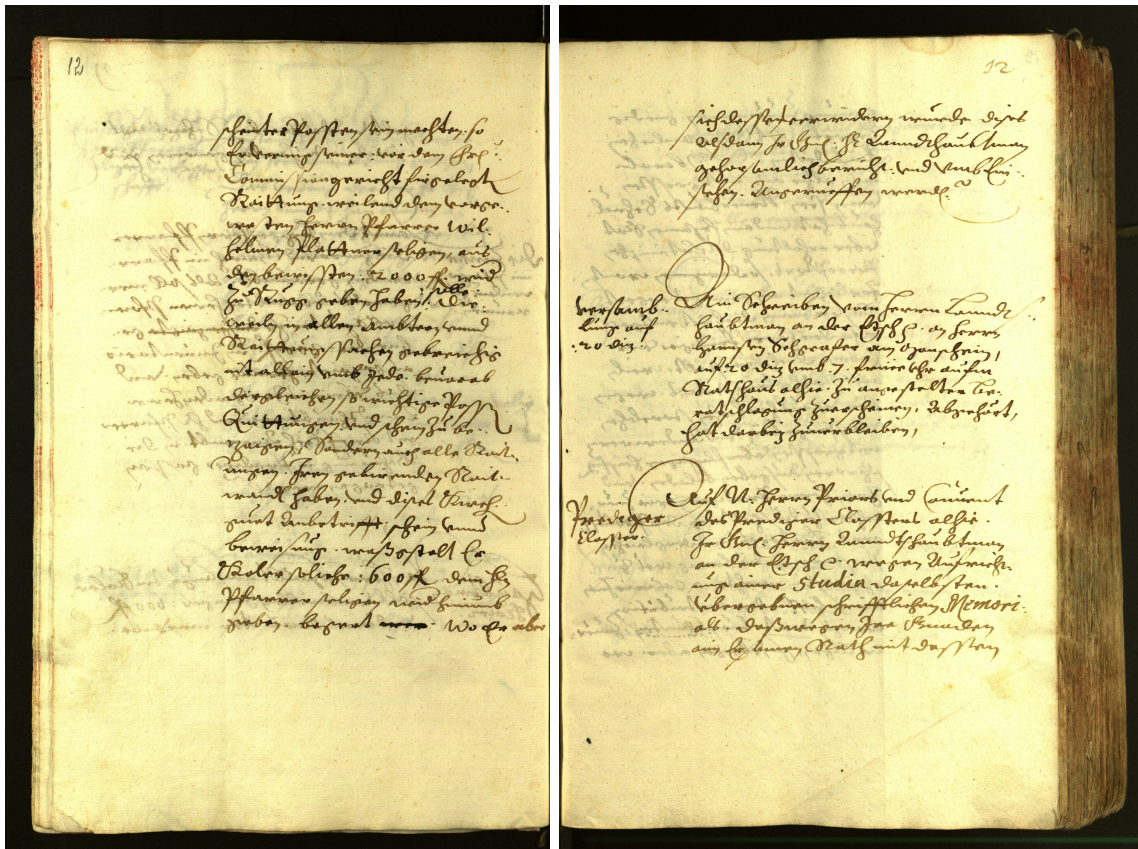 12
scheinter Possten sein mechten. so
Er verrung seiner. vor dem Erl:
Commissiongericht eingelegte
Raittung. weilend dem vorge-
westen Herrn Pfarrer Wil-
helmen Plattner seligen, aus
den bewussten. 2000 fl.
zu geben haben. alle. Die-
weiln in allen Ambtern unnd
Raittungssachen gebreichig
nit allein umb Jede. bevorab
dergleichen so wichtige Posst
Quittungen und schein zube-
zaigen, Sondern auch alle Rait-
ungen. Iren gebierenden Rait-
haben, und diset Kirch-
guet Anbetrifft, schein unnd
beweisung. wassgstalt Er
Koler soliche: 600 fl dem Hn
Pfarrer seligen
geben. begert Wo Er aber
12
sich dessen verwidern wurde. dises
Alsdann Ir Gn: H: Lanndtshaubtman
gehorsamlich bericht. und umb Ein-
sehen. Angerueffen werde.
versamb-
lung auf
20 diz.
Ain Schreiben vom Herrn Lanndts-
haubtman an der Etsch etc. an Herrn
Hannsen am
auf 20 diz umb. 7. fruee Uhr aufm
Rathaus alhie. zu angestelter be-
ratschlagung zuerscheinen. Abgehört,
hat darbey zuverbleiben,
Prediger
Closster.
Auf N. Herrn Priors und Convent
des Prediger Clossters alhie.
Ir Gn: Herrn Lanndtshaubtman
an der Etsch etc. wegen Aufricht-
ung ainer. Studia daselbsten.
übergebnen schrifftlichen Memori-
als. dasswegen Ire Gnaden
ain Er samen Rath mit dessten